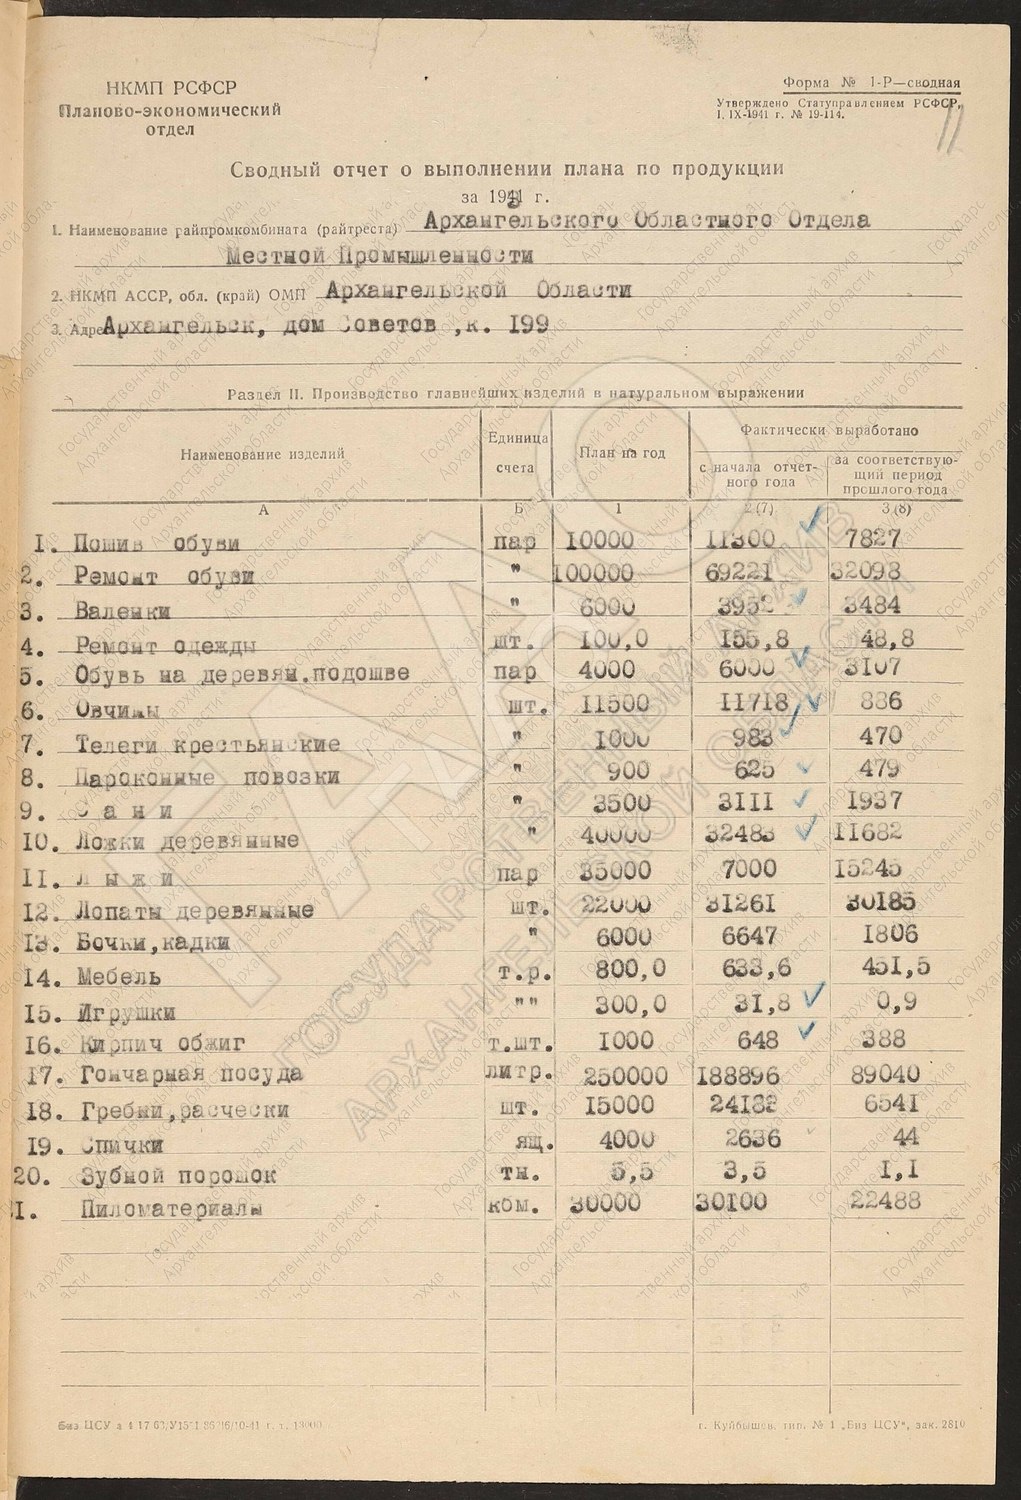 НКМП РСФСР
Планово-экономический
отдел
Форма № 1-Р—сводная
Утверждено Статуправлением РСФСР,
1. IX-1941 г. № 19-114.
11
Сводный отчет о выполнении плана по продукции
за 1943 г.
1. Наименование райпромкомбината (райтреста) Архангельского Областного Отдела
Местной Промышленности
2. НКМП АССР, обл. (край) ОМП Архангельской Области
3. Адрес Архангельск, дом Советов ,к. 199
Раздел II. Производство главнейших изделий в натуральном выражении
Наименование изделий
Единица счета
План на год
Фактически выработано
с начала отчетного года
за соответствующий период прошлого года
А Б 1 2 (7) 3 (8)
1. Пошив обуви пар 10000 11300 7827
2. Ремонт обуви " 100000 69221 32098
3. Валенки " 6000 3484
4. Ремонт одежды шт. 100,0 155,8 48,8
5. Обувь на деревян.подошве пар 4000 6000 3107
6. Овчины шт. 11500 11718 886
7. Телеги крестьянские " 1000 983 470
8. Пароконные повозки " 900 625 479
9. Сани " 3500 3111 1937
10. Ложки деревянные " 40000 32483 11682
11. Лыжи пар 35000 7000 15245
12. Лопаты деревянные шт. 22000 31261 30185
13. Бочки,кадки " 6000 6647 1806
14. Мебель т.р. 800,0 633,6 451,5
15. Игрушки "" 300,0 31,8 0,9
16. Кирпич обжиг т.шт. 1000 648 388
17. Гончарная посуда литр. 250000 188896 89040
18. Гребни,расчески шт. 15000 6541
19. Спички ящ. 4000 2636 44
20. Зубной порошок тн. 5,5 3,5 1,1
1. Пиломатериалы ком. 30000 30100 22488
г. Куйбышев, тип. № 1 „Биз ЦСУ", зак. 2810
ГААО
ГОСУДАРСТВЕННЫЙ АРХИВ
АРХАНГЕЛЬСКОЙ ОБЛАСТИ